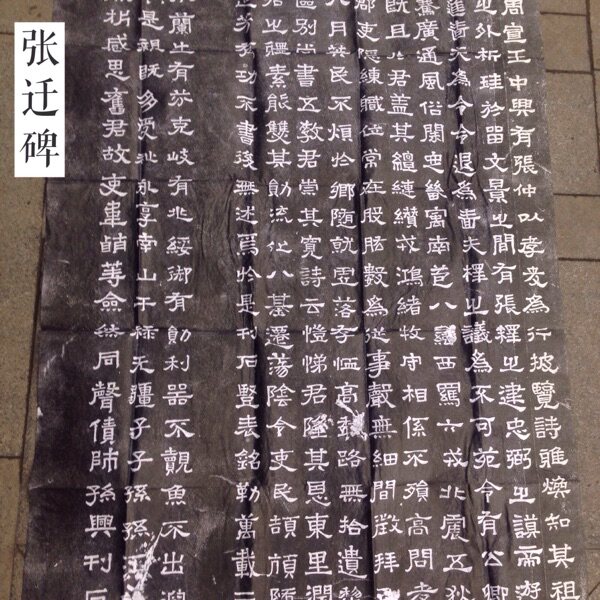 张迁碑
周宣王中興有張仲以孝友為行披覽詩雅煥知其祖
出外析珪於留文景之間有張釋之建忠弼之謨帝游
嗇夫為令令退為嗇夫釋之議為不可苑令有公卿
廣通風俗開定畿寓南苞八蠻西羈六戎北震五狄
既且於君蓋其繵縺纘戎鴻緒牧守相係不殞高問孝
郡吏隱練職位常在股肱數為從事聲無細聞徵拜
八月筭民不煩於鄉隨就虛落存恤高年路無拾遺
區別尚書五教君崇其寬詩云愷悌君隆其恩東里潤
之疆素能雙其勛流化八基遷蕩陰令吏民頡頏隨
功不書後無述焉於是刊石豎表銘勒萬載
蘭生有芬克岐有兆綏御有勛利器不覿魚不出淵
是詛既多受祉永享南山干祿无疆子子孫孫
析感思舊君故吏韋萌等僉然同聲賃師孫興刊石